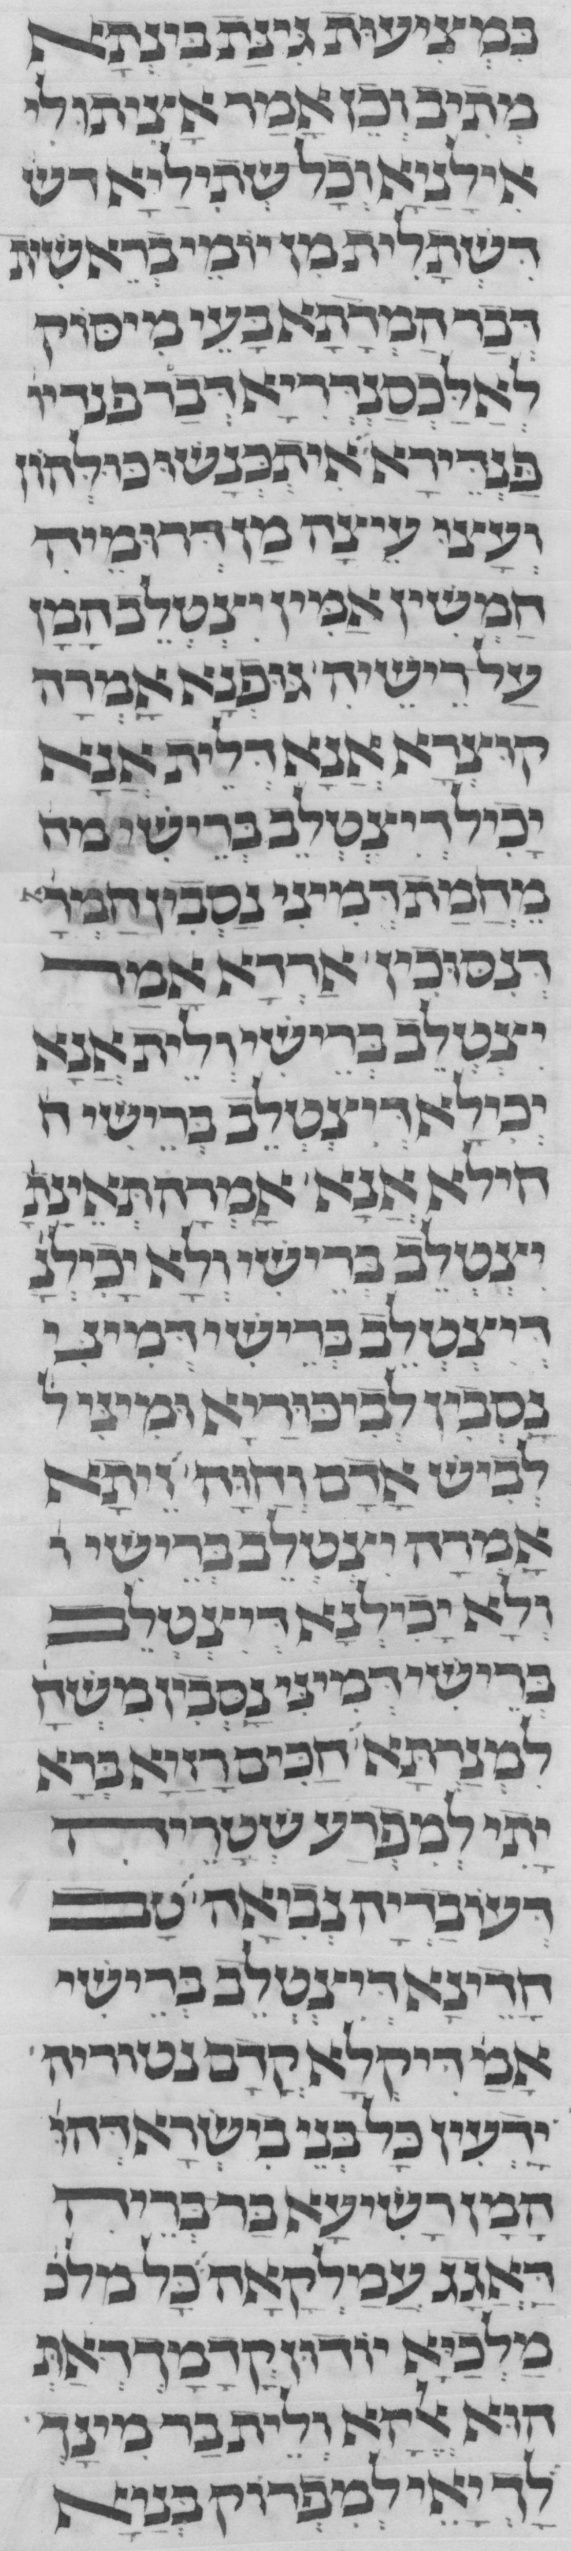 במציעות גינת ביתנא
מתיב וכן אמר אציתו לי
אילניא וכל שתיליא דש
דשתלית מן יומי בראשית
דבר המדתא בעי מיסוק
לאלכסנדריא דבר פנדיו
פנדירא איתכנשו כולהון
ועצו עיצה מן דרומיה
חמשין אמין יצטלב המן
על רישיה גופנא אמרה
קוצרא אנא דלית אנא
יכיל דיצטלב ברישי מה
מחמת דמיני נסבין חמרא
דנסוכין ארזא אמר
יצטלב ברישי ולית אנא
יכילא דיצטלב ברישי ח
חילא אנא אמרה תאינתא
יצטלב ברישי ולא יכילנ
דיצטלב ברישי דמיני
נסבין לביכוריא ומיני ל
לביש אדם וחוה זיתא
אמרה יצטלב ברישי ו
ולא יכילנא דיצטלב
ברישי דמיני נסבין משח
למנרתא חכים רזיא ברא
יתי למפרע שטריה
דעובדיה נביאה טב
חדינא דיצטלב ברישי
אמ דיקלא קדם נטוריה
ידעין כל בני בישרא דהו
המן רשיעא בר בריה
דאגג עמלקאה כל מלכ
מלכיא יודון קדמך דאת
הוא אלהא ולית בר מינך
לך יאי למפרוק בניא